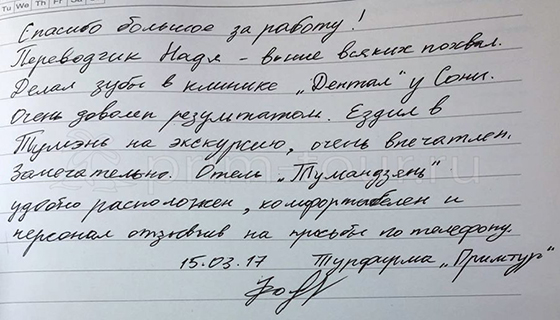 Tu We Th Fr Sa
Спасибо большое за работу!
Переводчик Надя - выше всяких похвал.
Делал зубы в клинике „Дентал“ у Сони.
Очень доволен результатом. Ездил в
Тумэнь на экскурсию, очень впечатлен.
Замечательно. Отель „Тумандзянь“
удобно расположен, комфортабелен и
персонал отзывчив на просьбы по телефону.
15.03.17 Турфирма „Примтур“
prim-tour.ru